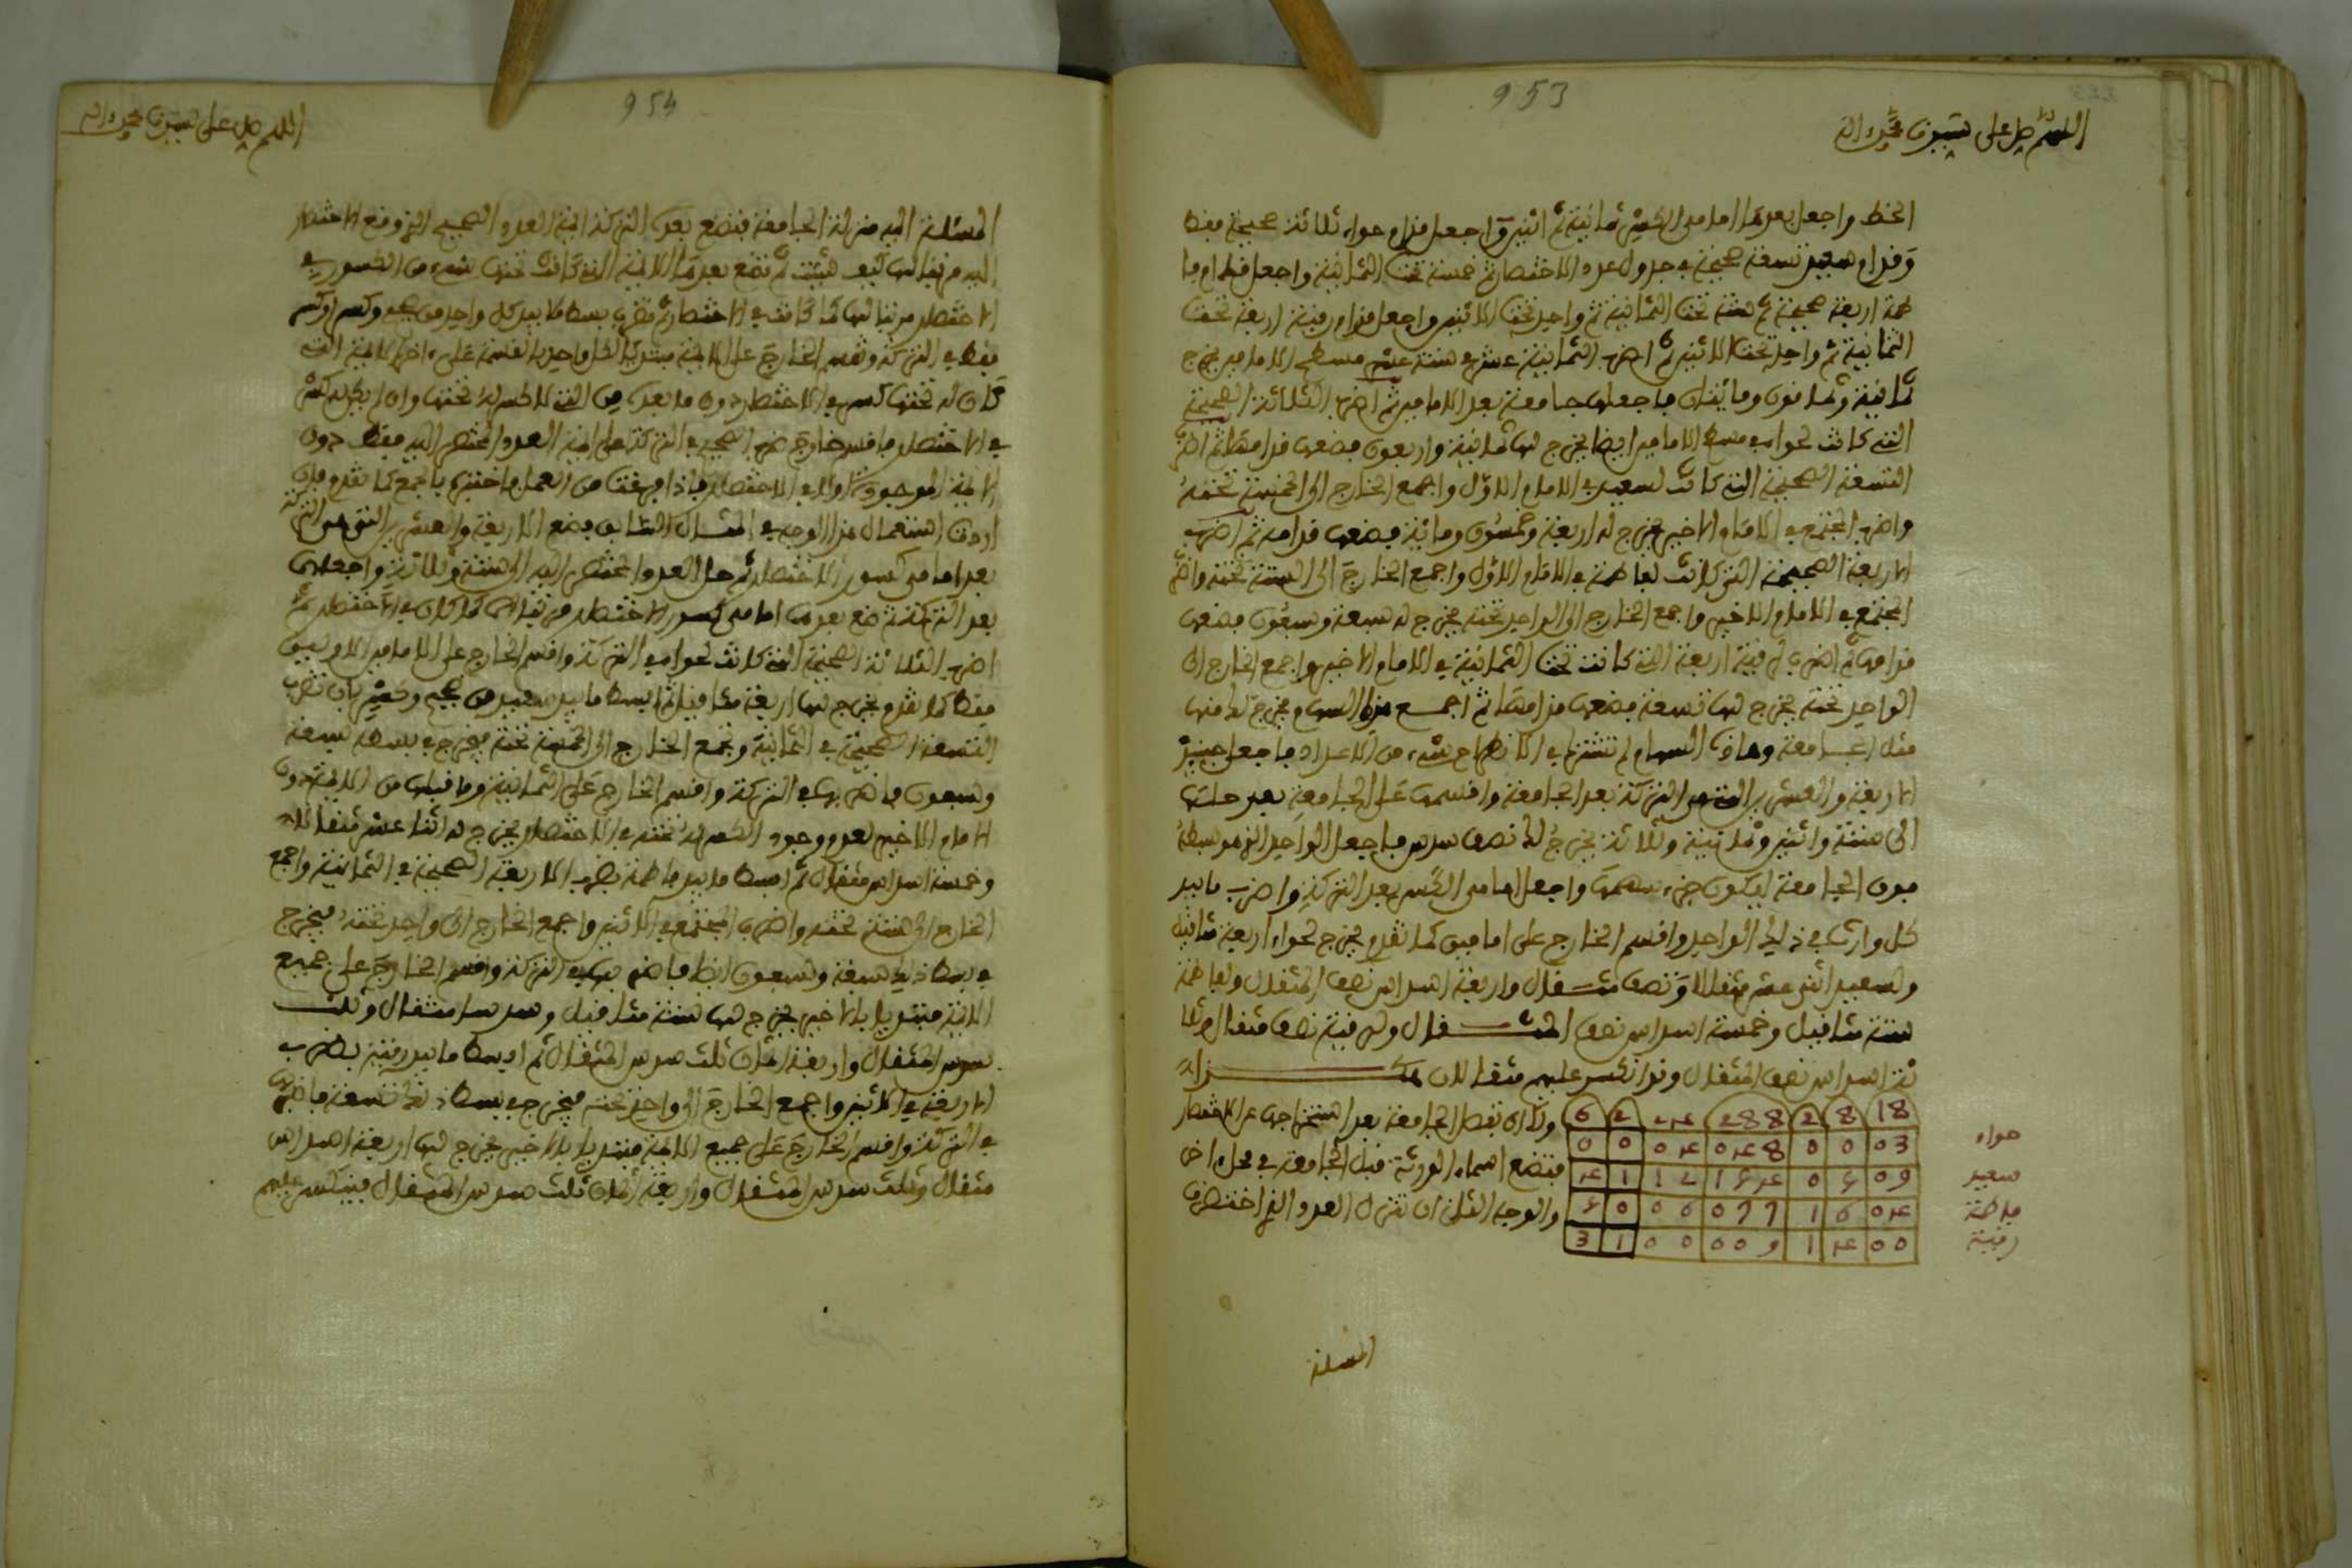 953
اللهم صل على سيدنا محمد واله
الخط واجعل بعدها امامى الكسر ثمانية ثم اثنين واجعل قدام حواء ثلاثة صحيحة فقط
وقدام سعيد تسعة صحيحة في جدول عدد الاختصار ثم خمسة تحت الثمانية واجعل قدام فا
طمة اربعة صحيحة ثم ستة تحت الثمانية ثم واحد تحت الاثنين واجعل قدام رقية اربعة تحت
الثمانية ثم واحد تحت الاثنين ثم اضرب الثمانية عشر في ستة عشر مسطح الامامين يخرج
ثمانية وثمانون ومائتان فاجعلها جامعة بعد الامامين ثم اضرب الثلاثة الصحيحة
التي كانت لحواء في مسطح الامامين ايضا يخرج لها ثمانية واربعون فضعها قدامها ثم اضرب
التسعة الصحيحة التي كانت لسعيد في الامام الاول واجمع الخارج الى الخمسة تحته
واضرب المجتمع في الامام الاخير يخرج له اربعة وخمسون ومائة فضعها قدامه ثم اضرب
الاربعة الصحيحة التي كانت لفاطمة في الامام الاول واجمع الخارج الى الستة تحته واضرب
المجتمع في الامام الاخير واجمع الخارج الى الواحد تحته يخرج له سبعة وسبعون فضعها
قدامها ثم اضرب لرقية اربعة التي كانت تحت الثمانية في الامام الاخير واجمع الخارج الى
الواحد تحته يخرج لها تسعة فضعها قدامها ثم اجمع هذه السهام يخرج لك منها
مثل الجامعة وهاذه السهام لم تشترك في الانصباء بشيء من الاعداد فاجعل حينئذ
الاربعة والعشرين التي هي التركة بعد الجامعة واقسمها على الجامعة بعد حلها
الى ستة واثنين وثمانية وثلاثة يخرج لك نصف سدس فاجعل الواحد الذي هو بسطه
فوق الجامعة ليكون جزء سهمها واجعل امامى الكسر بعد التركة واضرب ما بيد
كل وارث في ذلك الواحد واقسم الخارج على امامين كما تقدم يخرج لحواء اربعة مثاقيل
ولسعيد اثنى عشر مثقالا ونصف مثقال واربعة اسداس نصف المثقال ولفاطمة
ستة مثاقيل وخمسة اسداس نصف المثقال ولرقية نصف مثقال وثلا
ثة اسداس نصف المثقال وقد انكسر عليهم مثقالان هكذا
ولك ان تقصل الجامعة بعد استخراجها عن الاختصار
فتضع اسماء الورثة قبل الجامعة في محل اخر
والوجه الثاني ان تنزل العدد الذي اختصرت
18 8 2 288 24 2 6
حواء 03 0 0 048 04 0 0
سعيد 09 5 0 154 12 1 4
فاطمة 04 6 1 077 06 0 5
رقية 00 4 1 009 00 1 3
المسئلة
954
اللهم صل على سيدنا محمد واله
المسئلة اليه منزلة الجامعة فتضع بعده التركة ائمة العدد الصحيح الذي وقع الاختصار
اليه مرتبا لها كيف شئت ثم تضع بعدها الائمة التي كانت تحتها شيء من الكسور في
الاختصار مرتبا لها كما كانت في الاختصار ثم تضرب بسط ما بيد كل واحد من صحيح وكسر او كسر
فقط في التركة وتقسم الخارج على الائمة مبتديا لكل واحد بالقسمة على اخر الائمة التي
كان له تحتها كسر في الاختصار دون ما بعده من التي لا كسر له تحتها وان لم يكن له كسر
في الاختصار فاقسم خارج ضرب الصحيح في التركة على ائمة العدد المختصر اليه فقط دون
الائمة الموجودة اولا في الاختصار فاذا فرغت من العمل فاختبره بالجمع كما تقدم فان
اردت استعمال هذا الوجه في المثال السابق فضع الاربعة والعشرين التي هي التركة
بعد امامى كسور الاختصار ثم حل العدد المختصر اليه الى ستة وثلاثة واجعلها
بعد التركة ثم ضع بعدها امامى كسور الاختصار مرتبا لها كما كان في الاختصار ثم
اضرب الثلاثة الصحيحة التي كانت لحواء في التركة واقسم الخارج على الامامين الاولين
فقط كما تقدم يخرج لها اربعة مثاقيل ثم ابسط ما بيد سعيد من صحيح وكسر بان تضرب
التسعة الصحيحة في الثمانية وتجمع الخارج الى الخمسة تحته يخرج في بسطه سبعة
وسبعون فاضربها في التركة واقسم الخارج على الثمانية وما قبلها من الائمة دون
الامام الاخير لعدم وجود الكسر له تحته في الاختصار يخرج له اثنا عشر مثقالا
وخمسة اسداس مثقال ثم ابسط ما بيد فاطمة بضرب الاربعة الصحيحة في الثمانية واجمع
الخارج الى الستة تحته واضرب المجتمع في الاثنين واجمع الخارج الى واحد تحته فيخرج
في بسط ذلك سبعة وسبعون ايضا فاضربها في التركة واقسم الخارج على جميع
الائمة مبتديا بالاخير يخرج لها ستة مثاقيل وسدسا مثقال وثلث
سدس المثقال واربعة اثمان ثلث سدس المثقال ثم ابسط ما بيد رقية بضرب
الاربعة في الاثنين واجمع الخارج الى واحد تحته فيخرج في بسط ذلك تسعة فاضربها
في التركة واقسم الخارج على جميع الائمة مبتديا بالاخير يخرج لها اربعة اسداس
مثقال وثلث سدس المثقال واربعة اثمان ثلث سدس المثقال فينكسر عليهم